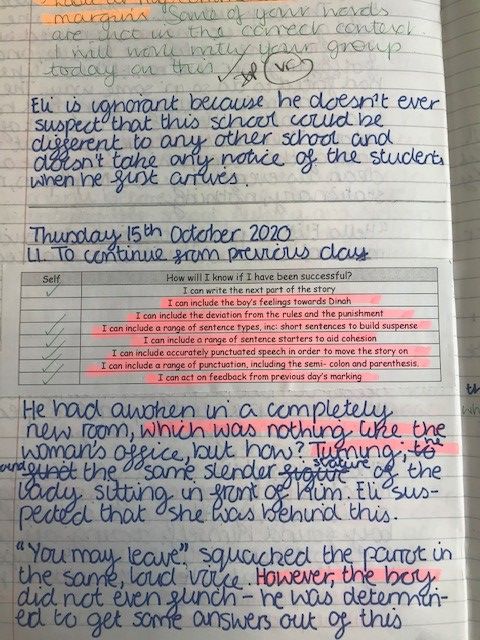 margins "Some of your words
are not in the correct context.
I will work with your group
today on this
VF
Eli is ignorant because he doesn't ever
suspect that this school could be
different to any other school and
doesn't take any notice of the students
when he first arrives.
Thursday 15th October 2020
LI. To continue from previous day
Self How will I know if I have been successful?
I can write the next part of the story
I can include the boy's feelings towards Dinah
I can include the deviation from the rules and the punishment
I can include a range of sentence types, inc: short sentences to build suspense
I can include a range of sentence starters to aid cohesion
I can include accurately punctuated speech in order to move the story on
I can include a range of punctuation, including the semi- colon and parenthesis.
I can act on feedback from previous day's marking
He had awoken in a completely
new room, which was nothing like the
woman's office, but how? Turning, to
the same slender stature of the
lady sitting in front of him. Eli sus-
pected that she was behind this.
"You may leave", squacked the parrot in
the same, loud voice. However, the boy
did not even flinch - he was determin-
ed to get some answers out of this